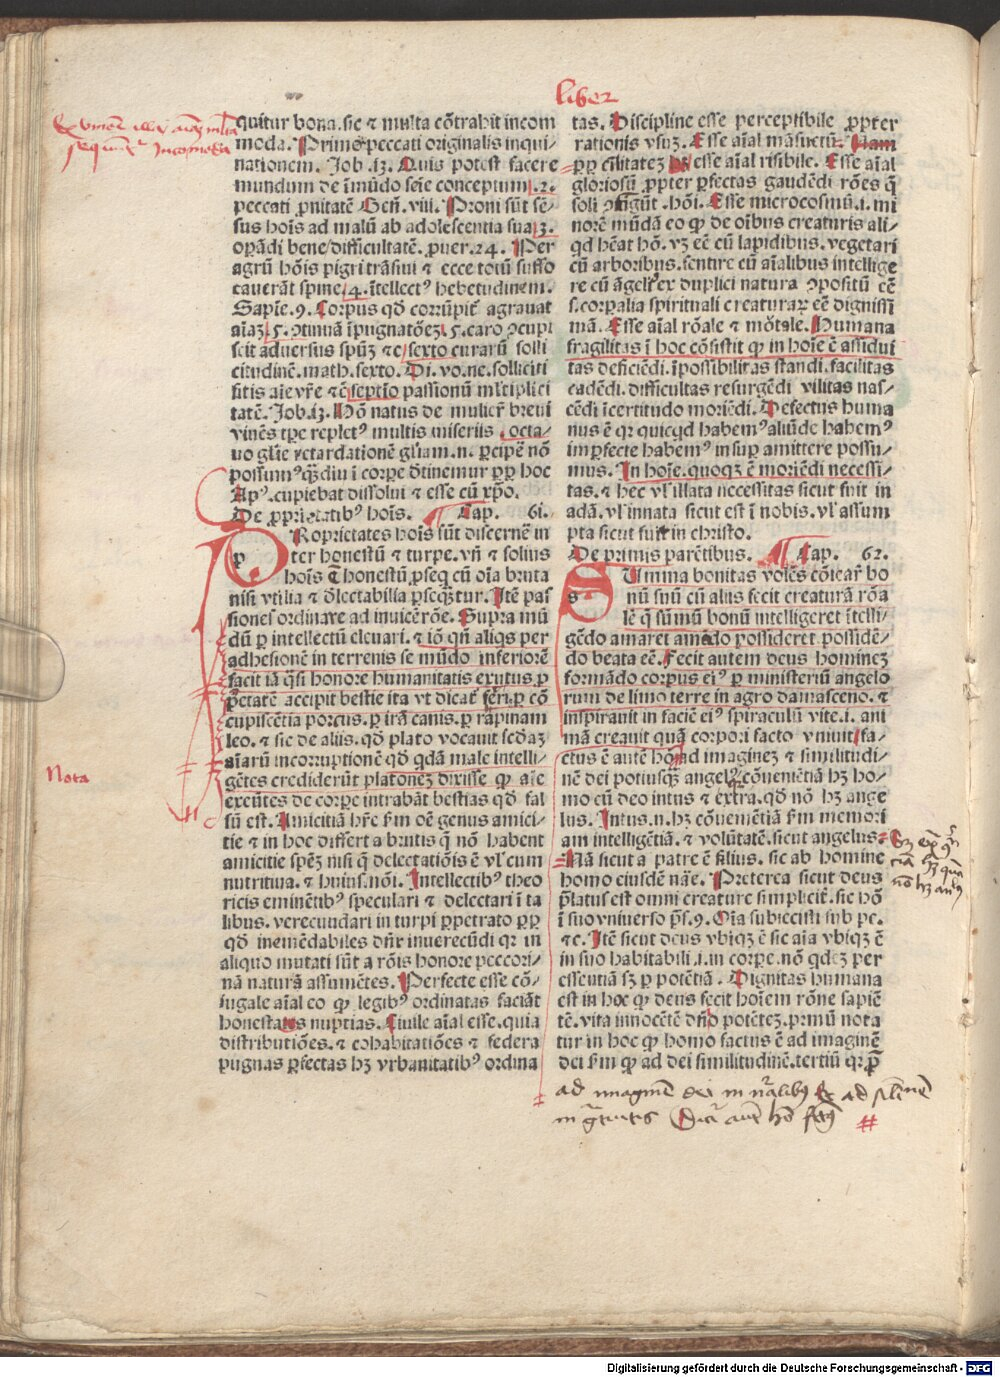 liber
quitur bona. sic ⁊ multa cōtrahit incom
moda. Primo peccati originalis inqui-
nationem. Job .i3. Quis potest facere
mundum de īmūdo seīe conceptum .2.
peccati ꝓnitatē Geñ. viii. Proni sūt sē-
sus hoīs ad malū ab adolescentia sua .3.
opādi bene difficultatē. ꝓuer. 24. Per
agrū hoīs pigri trāsiui ⁊ ecce totū suffo
cauerāt spine .4. ītellectꝰ hebetudinem.
Sapīe. 9. Corpus qd̄ corrūpit̄ agrauat
aīaꝫ .5. ꝯtinuā īpugnatōeꝫ .5. caro ꝯcupi
scit aduersus spūꝫ ⁊c sexto curarū solli
citudinē. math. sexto. Di. vo. ne. solliciti
sitis aīe vr̄e ⁊ c̄ septīo passionū mltiplici
tatē. Job. i3. Hō natus de mulier̄ breui
viuēs tꝑe repletꝰ multis miseriis . octa-
uo gl̄ie retardationē gl̄iam .n. ꝑcipē nō
possumꝰ qꝫdiu ī corꝑe d̄tinemur ꝓꝑ hoc
Apꝰ. cupiebat dissolui ⁊ esse cū xp̄o.
De ꝓprietatibꝰ hoīs. Cap. 61.
PRoprietates hoīs sūt discernē in
ter honestū ⁊ turpe. vñ ⁊ solius
hoīs ē honestū ꝓseq̄ cū oīa bruta
nisi vtilia ⁊ dlectabilia ꝑseqꝫtur. Itē pas
siones ordinare ad inuicē rōe. Supra mū
dū ꝑ intellectū eleuari. ⁊ iō qn̄ aliqs per
adhesionē in terrenis se mūdo inferiorē
facit iā q̄si honore humanitatis exutus ꝑ
ꝓetatē accipit bestie ita vt dicat̄ feri. ꝑ cō
cupiscētia porcus. ꝑ irā canis. ꝑ rapinam
leo. ⁊ sic de aliis. qd̄ plato vocauit sedaꝫ
aīarū incorruptionē qd̄ qdā male intelli-
gētes crediderūt platoneꝫ dixisse ꝙ aīe
exeūtes de corꝑe intrabāt bestias qd̄ fal
sū est. Amicitiā hr̄e fm oē genus amici-
tie ⁊ in hoc differt a brutis q̄ nō habent
amicitie spēꝫ nisi q̄ delectatiōis ē vl̄ cum
nutritiua. ⁊ huius. nōi. Intellectibꝰ theo
ricis eminētibꝰ speculari ⁊ delectari ī ta
libus. verecundari in turpi ꝑpetrato ꝓꝑ
qd̄ inemēdabiles dn̄r inuerecūdi qꝛ in
aliquo mutati sūt a rōis honore peccori-
nā naturā assumētes. Perfecte esse cō-
iugale aīal eo ꝙ legibꝰ ordinatas faciāt
honestatis nuptias. Ciuile aīal esse. quia
distributiōes. ⁊ cohabitatiōes ⁊ federa
pugnas ꝑfectas hꝫ vrbanitatibꝰ ordina
Nota
tas. Discipline esse perceptibile ꝓpter
rationis vsuꝫ. Esse aīal māsuetū. Nam
ꝓꝑ cīlitateꝫ esse aīal risibile. Esse aīal
gloriosū ꝓpter ꝑfectas gaudēdi rōes q̄
soli ꝯtigūt .hōi. Esse microcosmū .i. mi
norē mūdā eo ꝙ de oībus creaturis ali-
qd hēat hō. vꝫ eē cū lapidibus. vegetari
cū arboribus. sentire cū aīalibus intellige
re cū āgelis ex duplici natura ꝯpositū eē
s. corꝑalia spirituali creaturaꝝ eē dignissi
mā. Esse aīal rōale ⁊ mōtale. Humana
fragilitas ī hoc cōsistit ꝙ in hoīe ē assidui
tas deficiēdi. īpossibilitas standi. facilitas
cadēdi. difficultas resurgēdi vilitas nas-
cēdi īcertitudo moriēdi. Defectus huma
nus ē qꝛ quicqd habemꝰ aliūde habemꝰ
imꝑfecte habemꝰ insuꝑ amittere possu-
mus. In hoīe. quoqꝫ ē moriēdi necessi-
tas. ⁊ hec vl̄ illata necessitas sicut fuit in
adā. vl̄ innata sicut est ī nobis. vl̄ assum
pta sicut fuit in christo.
De primis parētibus. Cap. 62.
SUmma bonitas volēs cōicar̄ bo
nū suū cū aliis fecit creaturā rōa
lē q̄ sūmū bonū intelligeret ītelli-
gēdo amaret amādo possideret possidē-
do beata eē. Fecit autem deus homineꝫ
formādo corpus eiꝰ ꝑ ministeriū angelo
rum de limo terre in agro damasceno. ⁊
inspirauit in faciē eiꝰ spiraculū vite .i. ani
mā creauit quā corpori facto vniuit fa-
ctus ē autē hō ad imagineꝫ ⁊ similitudi-
nē dei potiusqꝫ angelꝰ cōueniētiā hꝫ ho-
mo cū deo intus ⁊ extra. qd̄ nō hꝫ ange
lus. Intus .n. hꝫ cōuenientiā fm memori
am intelligētiā. ⁊ volūtatē. sicut angelus
Nā sicut a patre ē filius. sic ab homine
homo eiusdē nāe. Preterea sicut deus
p̄latus est omni creature simplicit̄. sic hō
ī suo vniuerso ps̄. 9. Oīa subiecisti sub pe.
⁊c. Itē sicut deus vbiqꝫ ē sic aīa vbiqꝫ ē
in suo habitabili .i. in corꝑe. nō qdeꝫ per
essentiā sꝫ ꝑ potētiā. Dignitas humana
est in hoc ꝙ deus fecit hoīem rōne sapiē
tē. vita innocētē dn̄io potēteꝫ. pꝛmū nota
tur in hoc ꝙ homo factus ē ad imaginē
dei fm ꝙ ad dei similitudinē. tertiū qꝛ p̄
Digitalisierung gefördert durch die Deutsche Forschungsgemeinschaft - DFG